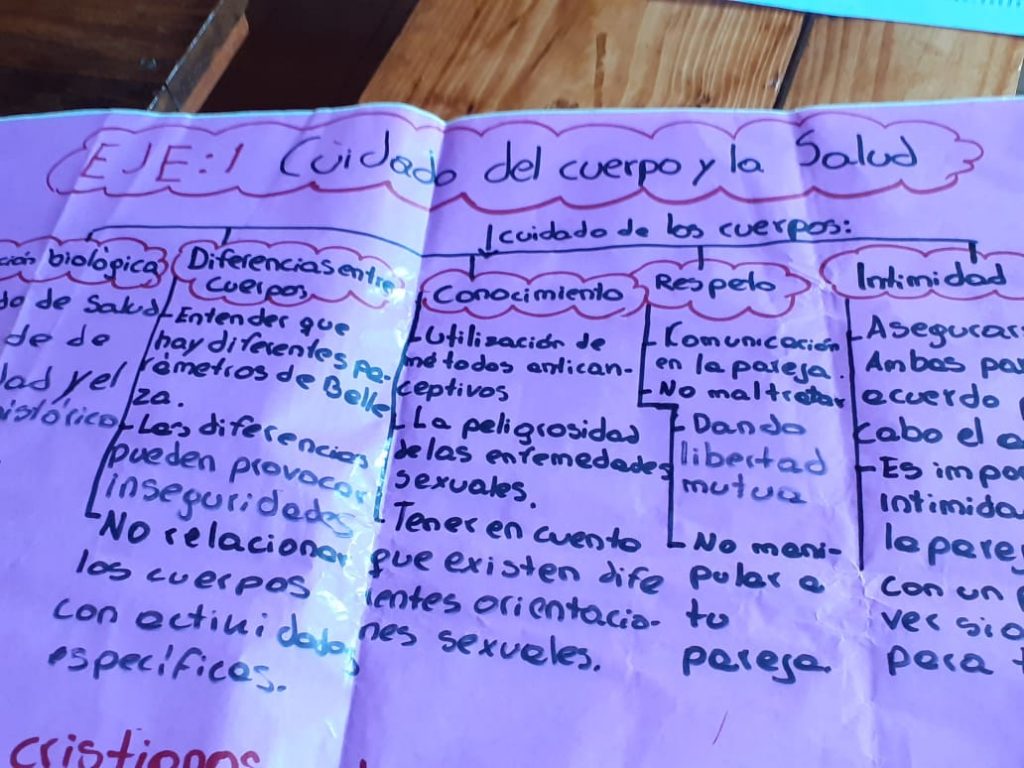 EJE:1 Cuidado del cuerpo y la Salud
cuidado de los cuerpos:
ción biológica
do de Salud
de de
dad y el
histórico
Diferencias entre
cuerpos
-Entender que
hay diferentes pa-
rámetros de Belle
za.
-Las diferencias
pueden provocar
inseguridades
-No relacionar
los cuerpos
con actividades
específicas.
Conocimiento
-Utilización de
métodos antican-
ceptivos
-La peligrosidad
de las enfemedades
sexuales.
-Tener en cuenta
que existen dife
rentes orientacio-
nes sexuales.
Respeto
-Comunicación
en la pareja.
-No maltratar
-Dando
libertad
mutua
-No mani-
pular a
tu
pareja.
Intimidad
-Asegurar
Ambas par
acuerdo
cabo el a
-Es impo
intimida
la pare
con un
ver si o
para
cristianos